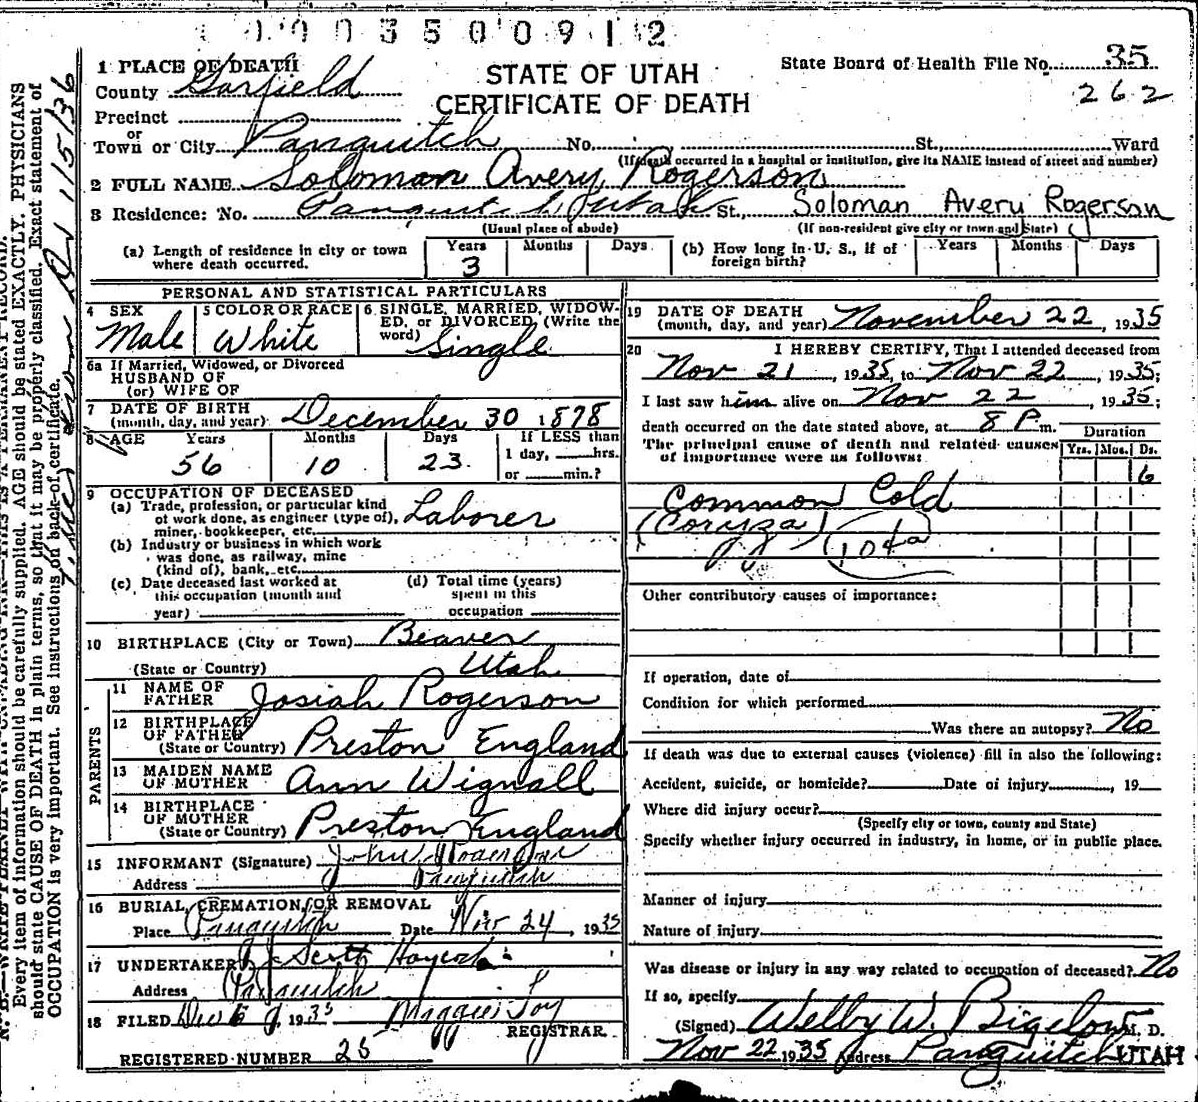 0 0 0 3 5 0 0 9 1 2
1 PLACE OF DEATH
County Garfield
STATE OF UTAH
CERTIFICATE OF DEATH
State Board of Health File No. 35
262
Precinct
or
Town or City Panguitch No. St., Ward
(If death occurred in a hospital or institution, give its NAME instead of street and number)
2 FULL NAME Soloman Avery Rogerson
3 Residence: No. Panguitch, Utah St., Soloman Avery Rogerson
(Usual place of abude) (If non-resident give city or town and State)
(a) Length of residence in city or town where death occurred. Years 3 Months Days
(b) How long in U. S., if of foreign birth? Years Months Days
PERSONAL AND STATISTICAL PARTICULARS
4 SEX Male
5 COLOR OR RACE White
6 SINGLE, MARRIED, WIDOWED, or DIVORCED, (Write the word) Single
6a If Married, Widowed, or Divorced
HUSBAND OF
(or) WIFE OF
7 DATE OF BIRTH
(month, day, and year) December 30 1878
8 AGE Years Months Days If LESS than
56 10 23 1 day, hrs.
or min.?
9 OCCUPATION OF DECEASED
(a) Trade, profession, or particular kind
of work done, as engineer (type of),
miner, bookkeeper, etc. Laborer
(b) Industry or business in which work
was done, as railway, mine
(kind of), bank, etc.
(c) Date deceased last worked at
this occupation (month and
year)
(d) Total time (years)
spent in this
occupation
10 BIRTHPLACE (City or Town) Beaver
(State or Country) Utah
PARENTS
11 NAME OF FATHER Josiah Rogerson
12 BIRTHPLACE OF FATHER
(State or Country) Preston England
13 MAIDEN NAME OF MOTHER Ann Wignall
14 BIRTHPLACE OF MOTHER
(State or Country) Preston England
15 INFORMANT (Signature) John Rogerson
Address Panguitch
16 BURIAL, CREMATION, OR REMOVAL
Place Panguitch Date Nov 24, 1935
17 UNDERTAKER Scott Haycock
Address Panguitch
18 FILED Dec 6, 1935 Maggie Foy
REGISTRAR
REGISTERED NUMBER 25
19 DATE OF DEATH
(month, day, and year) November 22, 1935
20 I HEREBY CERTIFY, That I attended deceased from
Nov 21, 1935, to Nov 22, 1935;
I last saw him alive on Nov 22, 1935;
death occurred on the date stated above, at 8 P m.
The principal cause of death and related causes
of importance were as follows:
Duration
Yrs. Mos. Ds.
6
Common Cold
(Coryza) 104a
Other contributory causes of importance:
If operation, date of
Condition for which performed
Was there an autopsy? No
If death was due to external causes (violence) fill in also the following:
Accident, suicide, or homicide? Date of injury, 19
Where did injury occur?
(Specify city or town, county and State)
Specify whether injury occurred in industry, in home, or in public place.
Manner of injury
Nature of injury
Was disease or injury in any way related to occupation of deceased? No
If so, specify
(Signed) Welby W. Bigelow M. D.
Nov 22 1935 Address Panguitch UTAH
Every item of information should be carefully supplied. AGE should be stated EXACTLY. PHYSICIANS
should state CAUSE OF DEATH in plain terms, so that it may be properly classified. Exact statement of
OCCUPATION is very important. See instructions on back of certificate.
1/15/36